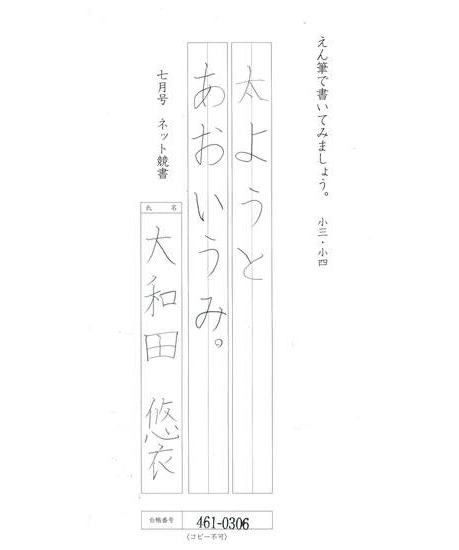 えん筆で書いてみましょう。 小三・小四
太ようと
あおいうみ。
七月号 ネット競書
氏名
大和田 悠衣
合格番号
461-0306
(コピー不可)